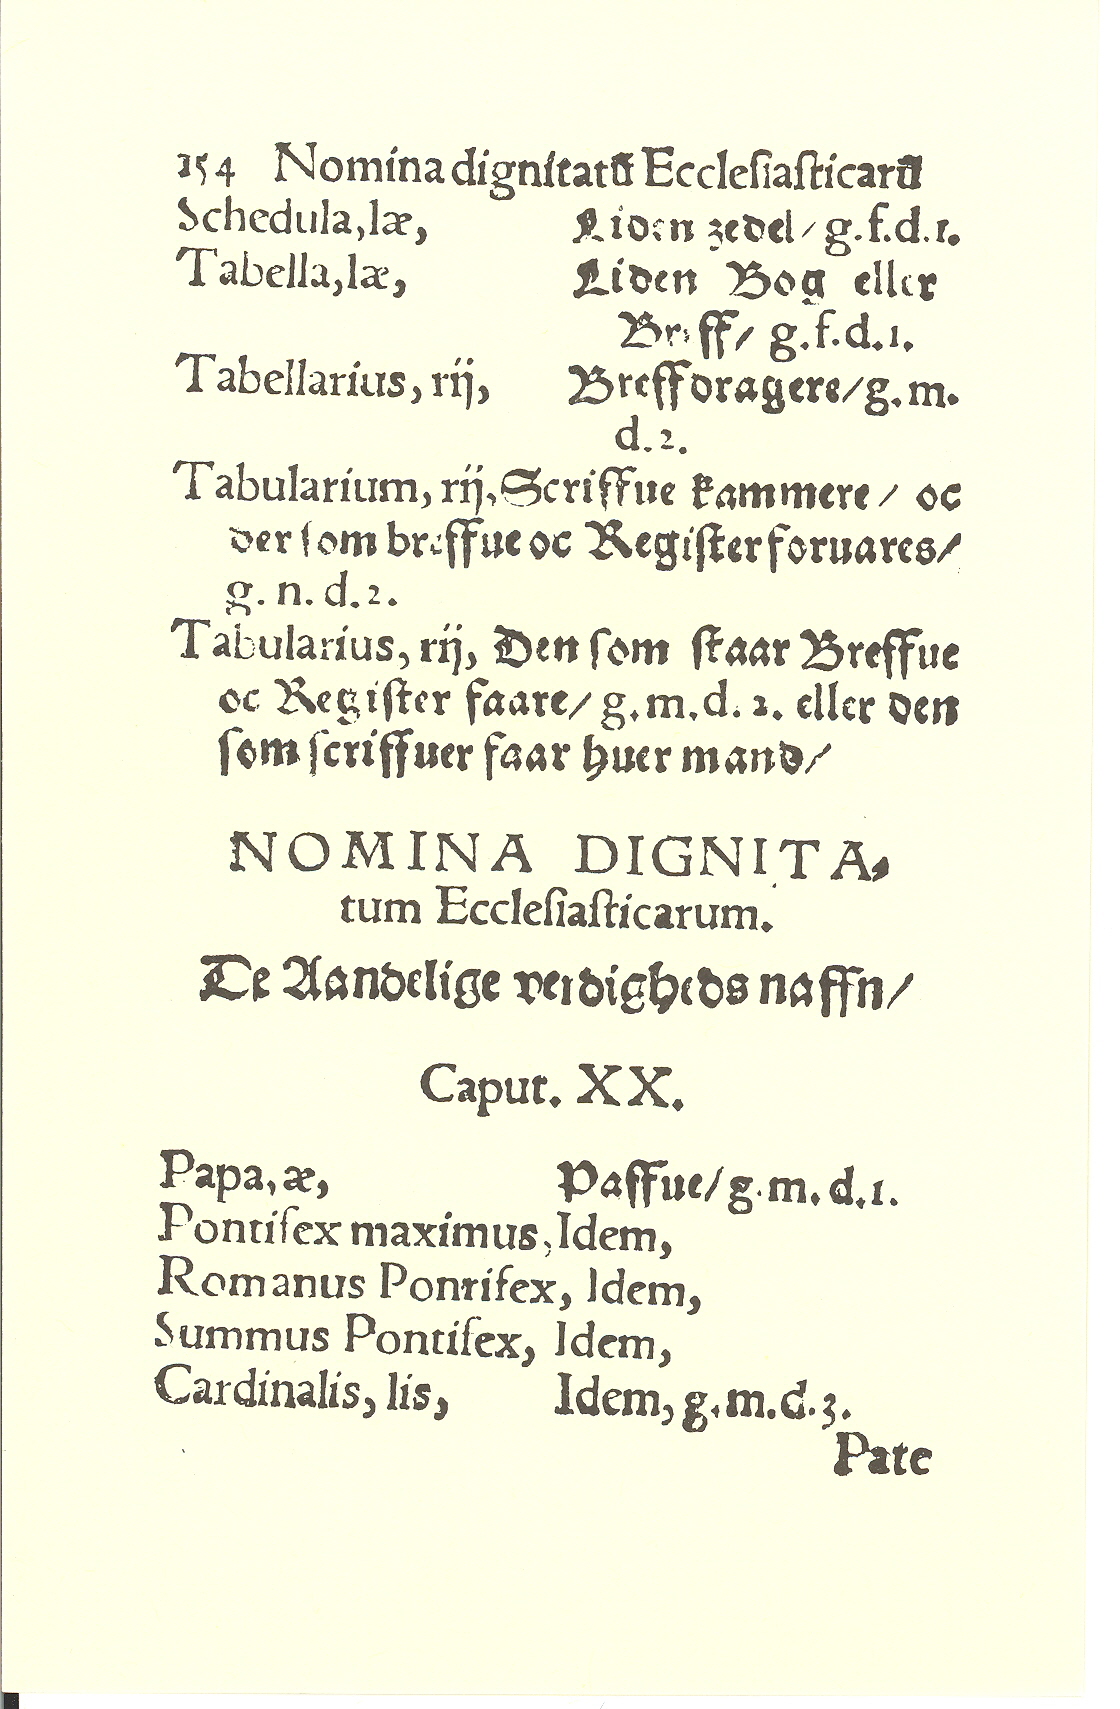 154 Nomina dignitatū Ecclesiasticarū
Schedula, læ, Liden zedel / g.f.d.1.
Tabella, læ, Liden Bog eller
Breff / g.f.d.1.
Tabellarius, rij, Breffdragere / g.m.
d.2.
Tabularium, rij, Scriffue kammere / oc
der som breffue oc Register foruares /
g.n.d.2.
Tabularius, rij, Den som staar Breffue
oc Register faare / g.m.d.2. eller den
som scriffuer faar huer mand /
NOMINA DIGNITA,
tum Ecclesiasticarum.
De Aandelige verdigheds naffn /
Caput. XX.
Papa, æ, Paffue / g.m.d.1.
Pontifex maximus, Idem,
Romanus Pontifex, Idem,
Summus Pontifex, Idem,
Cardinalis, lis, Idem, g.m.d.3.
Pate